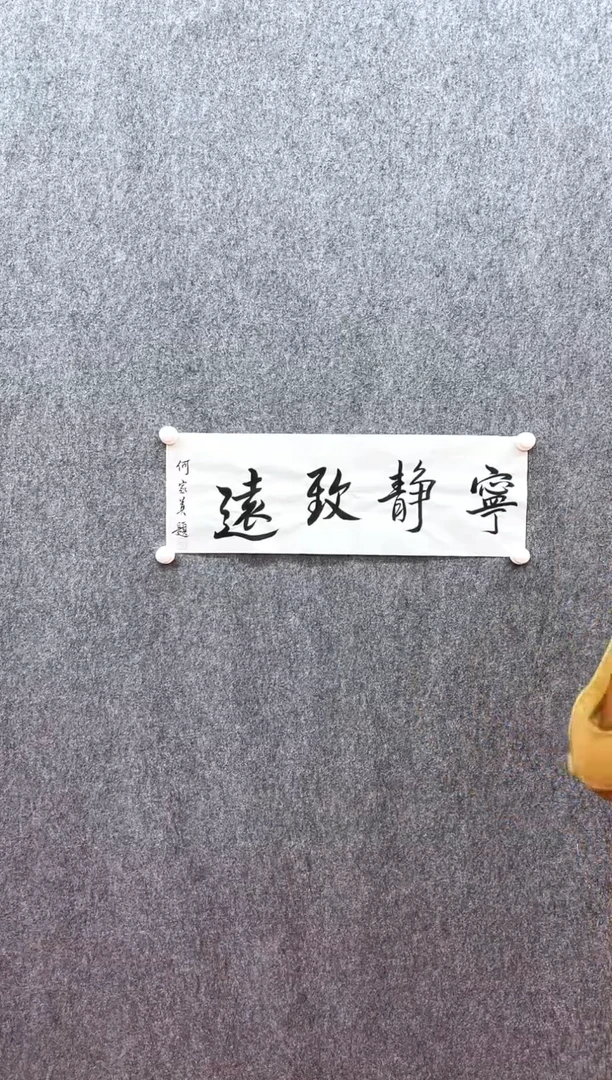 寧靜致遠
何家英題